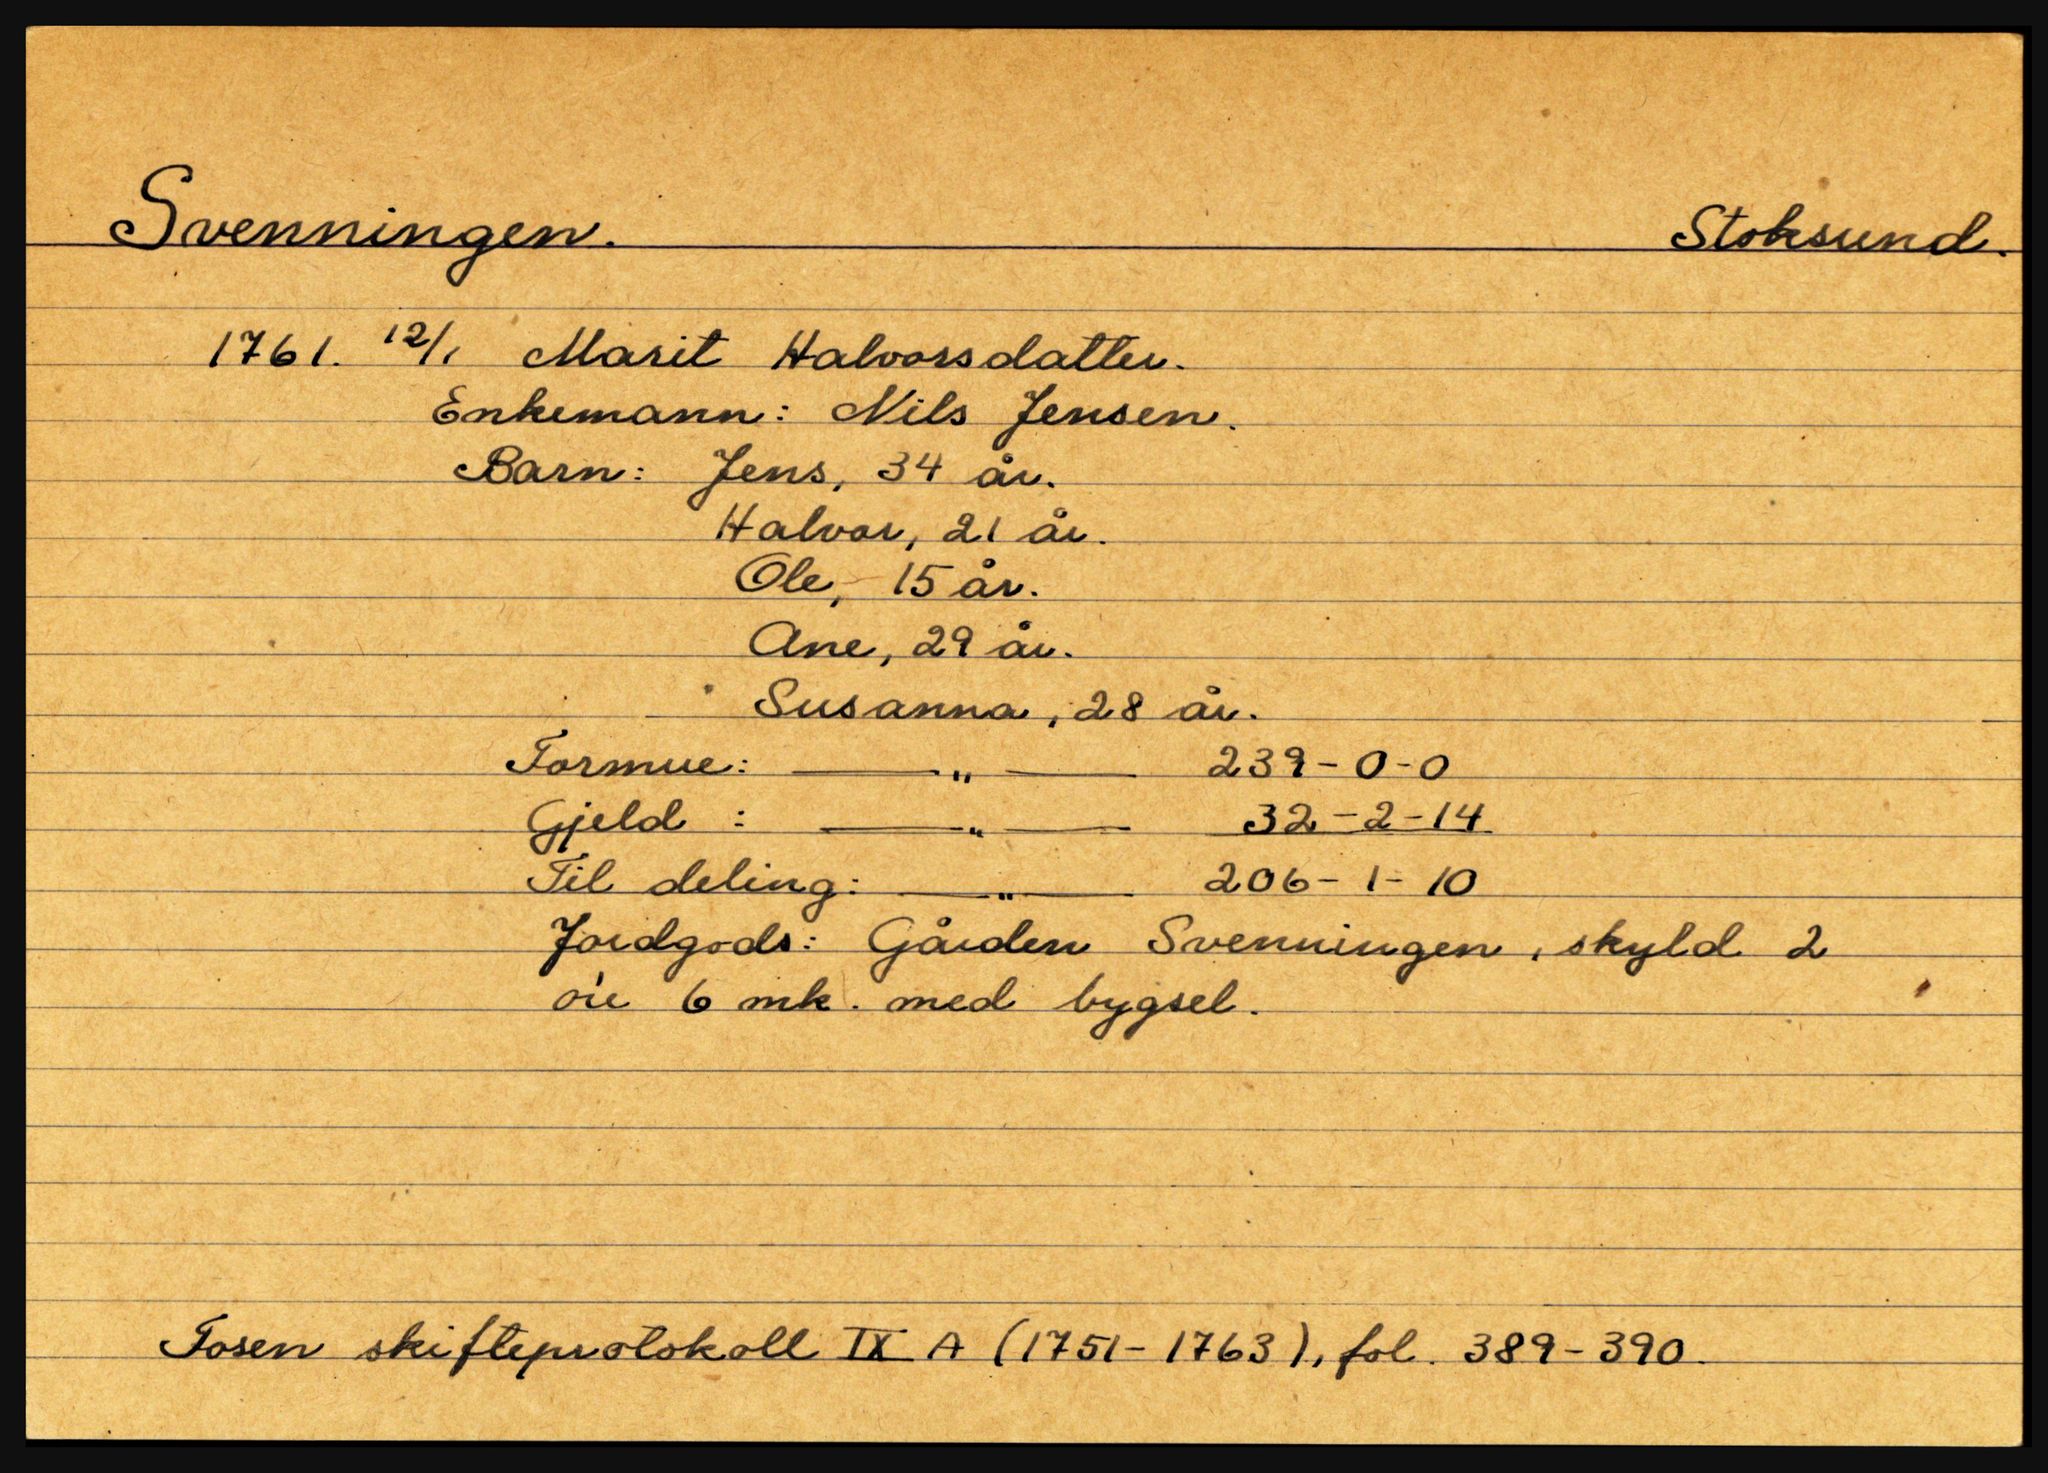 Svenningen. Stoksund.
1761. 12/1 Marit Halvorsdatter.
Enkemann: Nils Jensen.
Barn: Jens, 34 år.
Halvor, 21 år.
Ole, 15 år.
Ane, 29 år.
Susanna, 28 år.
Formue: —— „ —— 239-0-0
Gjeld : —— „ —— 32-2-14
Til deling: —— „ —— 206-1-10
Jordgods: Gården Svenningen, skyld 2
øre 6 mk. med bygsel.
Fosen skifteprotokoll IX A (1751-1763), fol. 389-390.